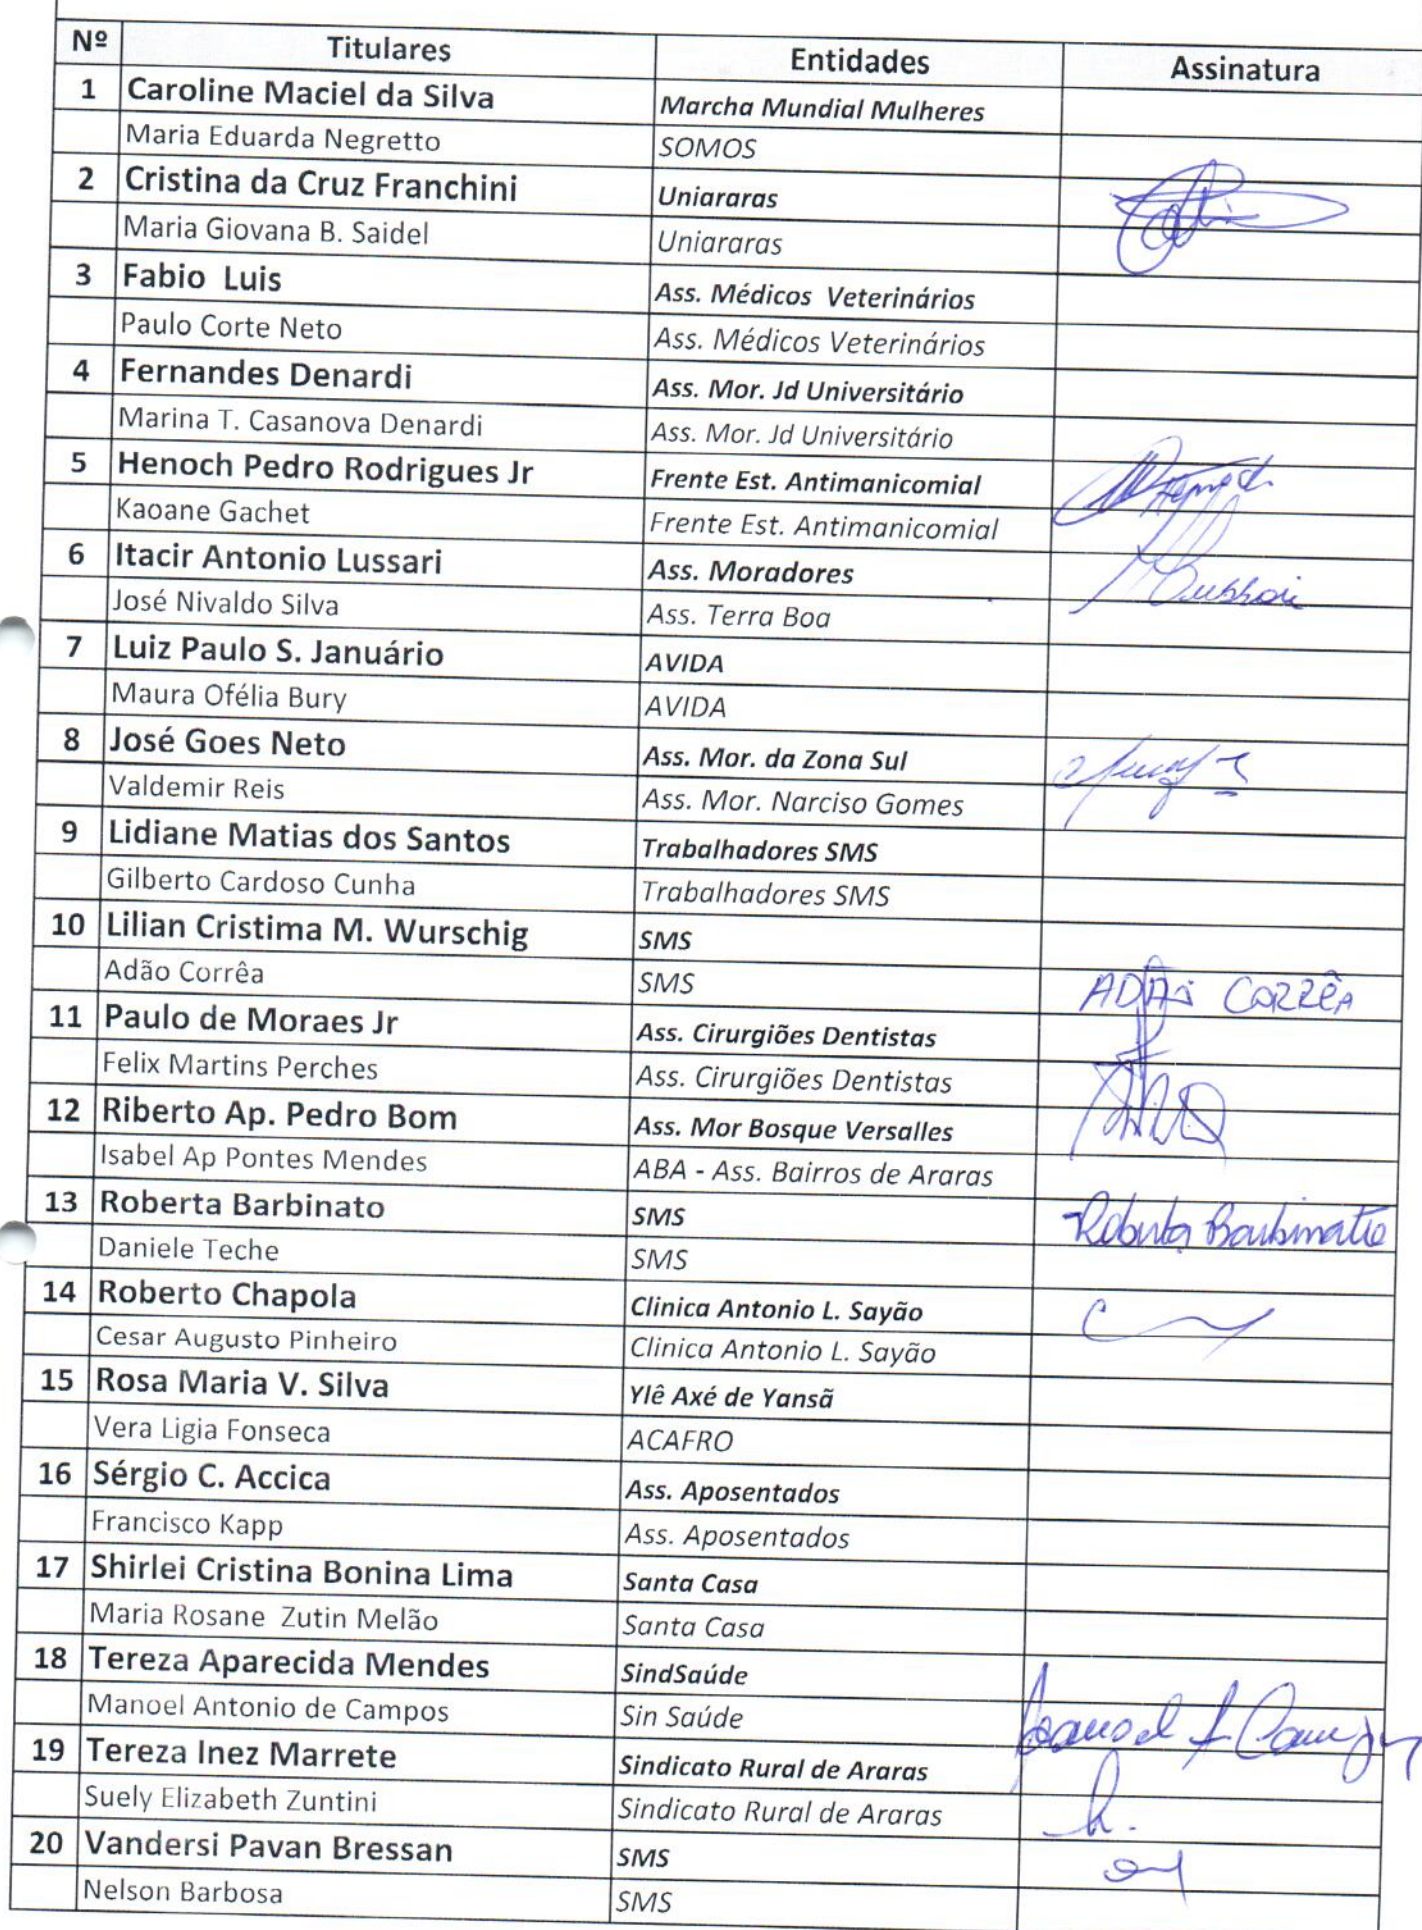 Nº Titulares Entidades Assinatura
1 Caroline Maciel da Silva Marcha Mundial Mulheres
Maria Eduarda Negretto SOMOS
2 Cristina da Cruz Franchini Uniararas
Maria Giovana B. Saidel Uniararas
3 Fabio Luis Ass. Médicos Veterinários
Paulo Corte Neto Ass. Médicos Veterinários
4 Fernandes Denardi Ass. Mor. Jd Universitário
Marina T. Casanova Denardi Ass. Mor. Jd Universitário
5 Henoch Pedro Rodrigues Jr Frente Est. Antimanicomial
Kaoane Gachet Frente Est. Antimanicomial
6 Itacir Antonio Lussari Ass. Moradores
José Nivaldo Silva Ass. Terra Boa
7 Luiz Paulo S. Januário AVIDA
Maura Ofélia Bury AVIDA
8 José Goes Neto Ass. Mor. da Zona Sul
Valdemir Reis Ass. Mor. Narciso Gomes
9 Lidiane Matias dos Santos Trabalhadores SMS
Gilberto Cardoso Cunha Trabalhadores SMS
10 Lilian Cristima M. Wurschig SMS
Adão Corrêa SMS ADÃO CORRÊA
11 Paulo de Moraes Jr Ass. Cirurgiões Dentistas
Felix Martins Perches Ass. Cirurgiões Dentistas
12 Riberto Ap. Pedro Bom Ass. Mor Bosque Versalles
Isabel Ap Pontes Mendes ABA - Ass. Bairros de Araras
13 Roberta Barbinato SMS Roberta Barbinato
Daniele Teche SMS
14 Roberto Chapola Clinica Antonio L. Sayão
Cesar Augusto Pinheiro Clinica Antonio L. Sayão
15 Rosa Maria V. Silva Ylê Axé de Yansã
Vera Ligia Fonseca ACAFRO
16 Sérgio C. Accica Ass. Aposentados
Francisco Kapp Ass. Aposentados
17 Shirlei Cristina Bonina Lima Santa Casa
Maria Rosane Zutin Melão Santa Casa
18 Tereza Aparecida Mendes SindSaúde
Manoel Antonio de Campos Sin Saúde
19 Tereza Inez Marrete Sindicato Rural de Araras
Suely Elizabeth Zuntini Sindicato Rural de Araras
20 Vandersi Pavan Bressan SMS
Nelson Barbosa SMS